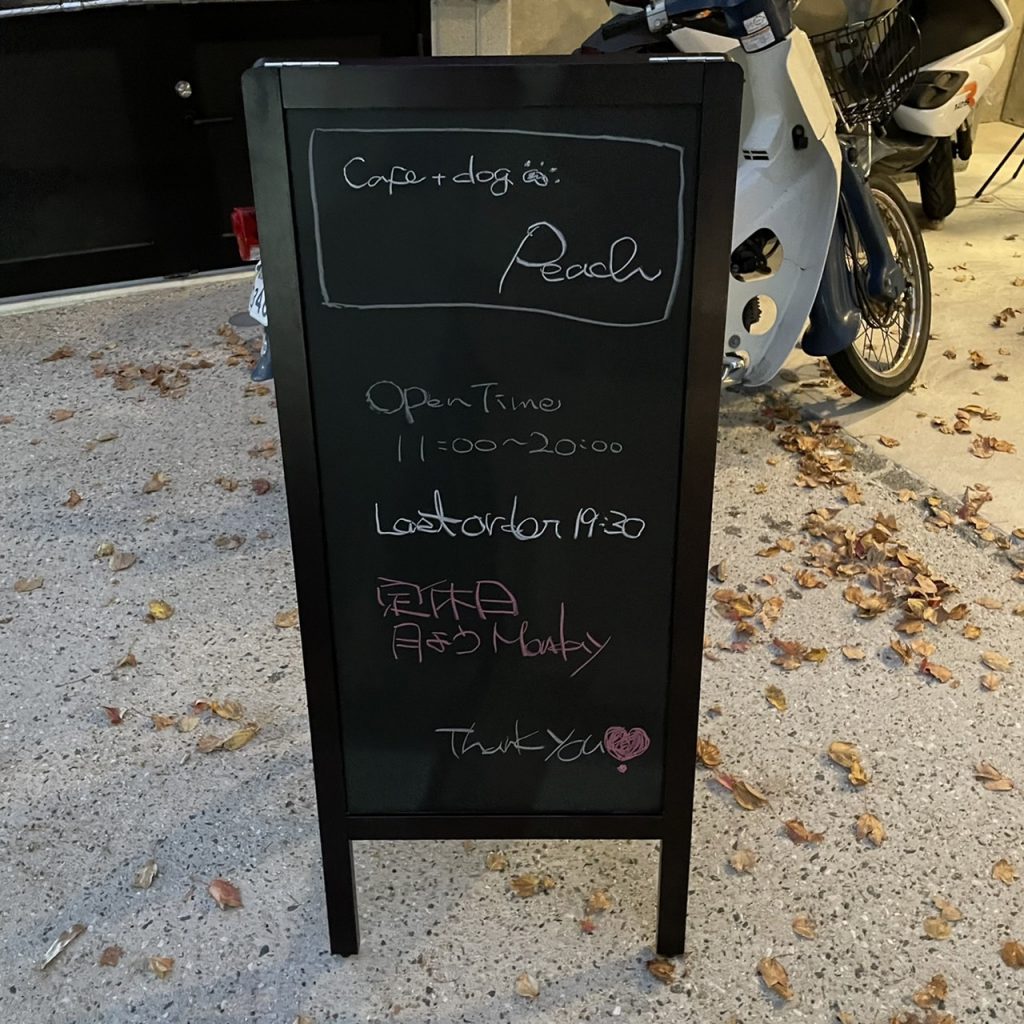 Cafe + dog
Peach
Open Time
11:00～20:00
Last order 19:30
定休日
月よう Monday
Thank you